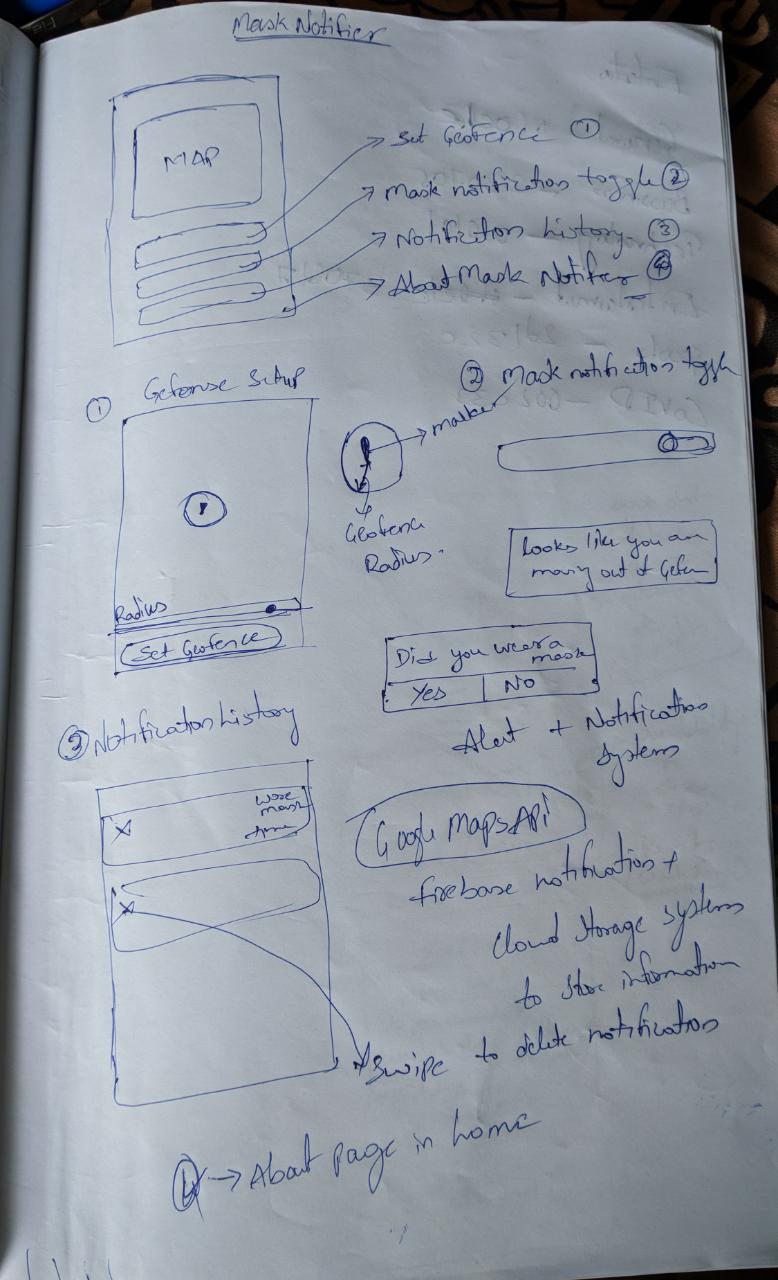 Mask Notifier
MAP
Set Geofence ①
Mask notification toggle ②
Notification history ③
About Mask Notifier ④
① Gefense Setup
② Mask notification toggle
marker
Geofence
Radius.
Looks like you are
moving out of Gefen
Radius
Set Geofence
Did you wear a
mask
Yes
No
Alert + Notification
Systems
③ Notification history
wore
mask
time
X
X
Google Maps Api
firebase notification +
cloud storage systems
to store information
Swipe to delete notification
④ → About page in home